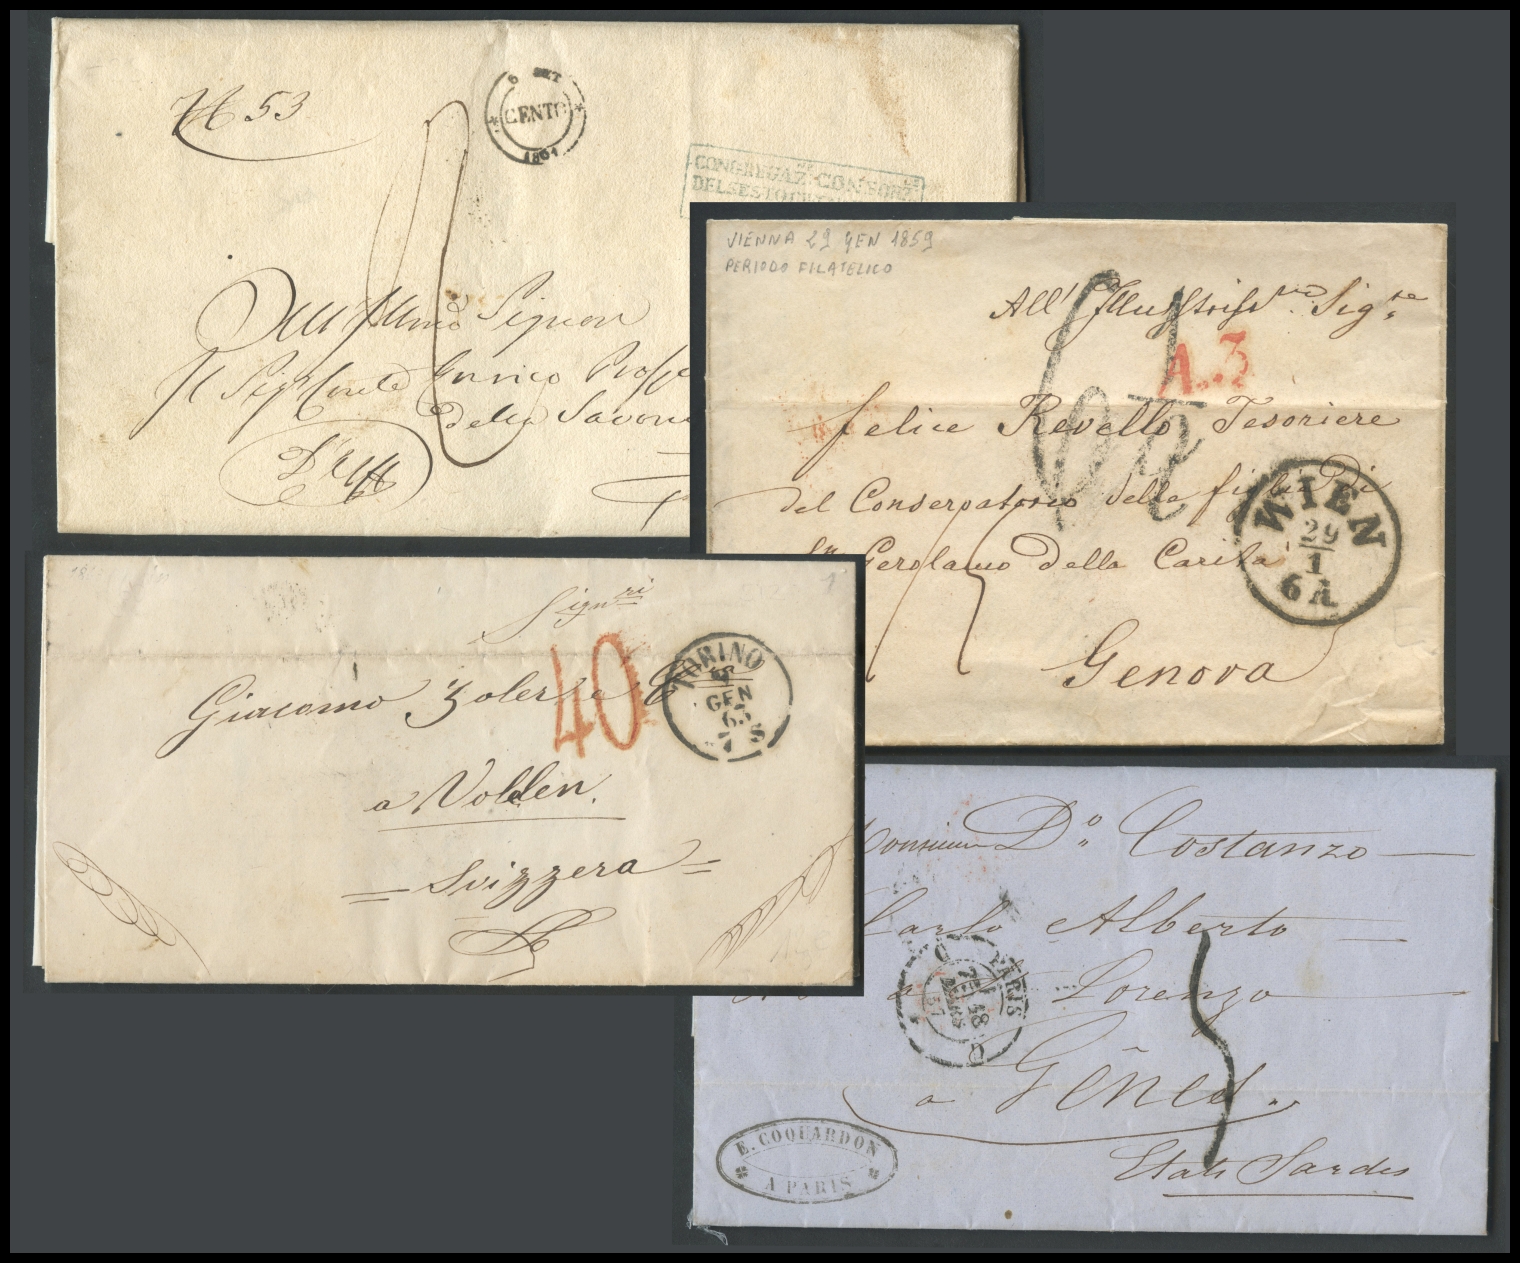 N 53
6 SET
CENTO
1861
CONGREGAZ.NE CONSORZ
DEL SESTO
Signor
Il Sig.r Conte Enrico
della
VIENNA 29 GEN 1859
PERIODO FILATELICO
All' Illustriss.mo Sig.re
A.3
Felice Revello Tesoriere
del Conservatorio delle figlie Di
Sn Gerolamo della Carità
Genova
WIEN
29
1
6 A.
Sign.ri
40
Giacomo
TORINO
GEN
63
7 S
a Wolden.
Svizzera
Monsieur D.o Costanzo
Carlo Alberto
a S. Lorenzo
a Gênes
Etats Sardes
PARIS
E. COQUARDON
A PARIS